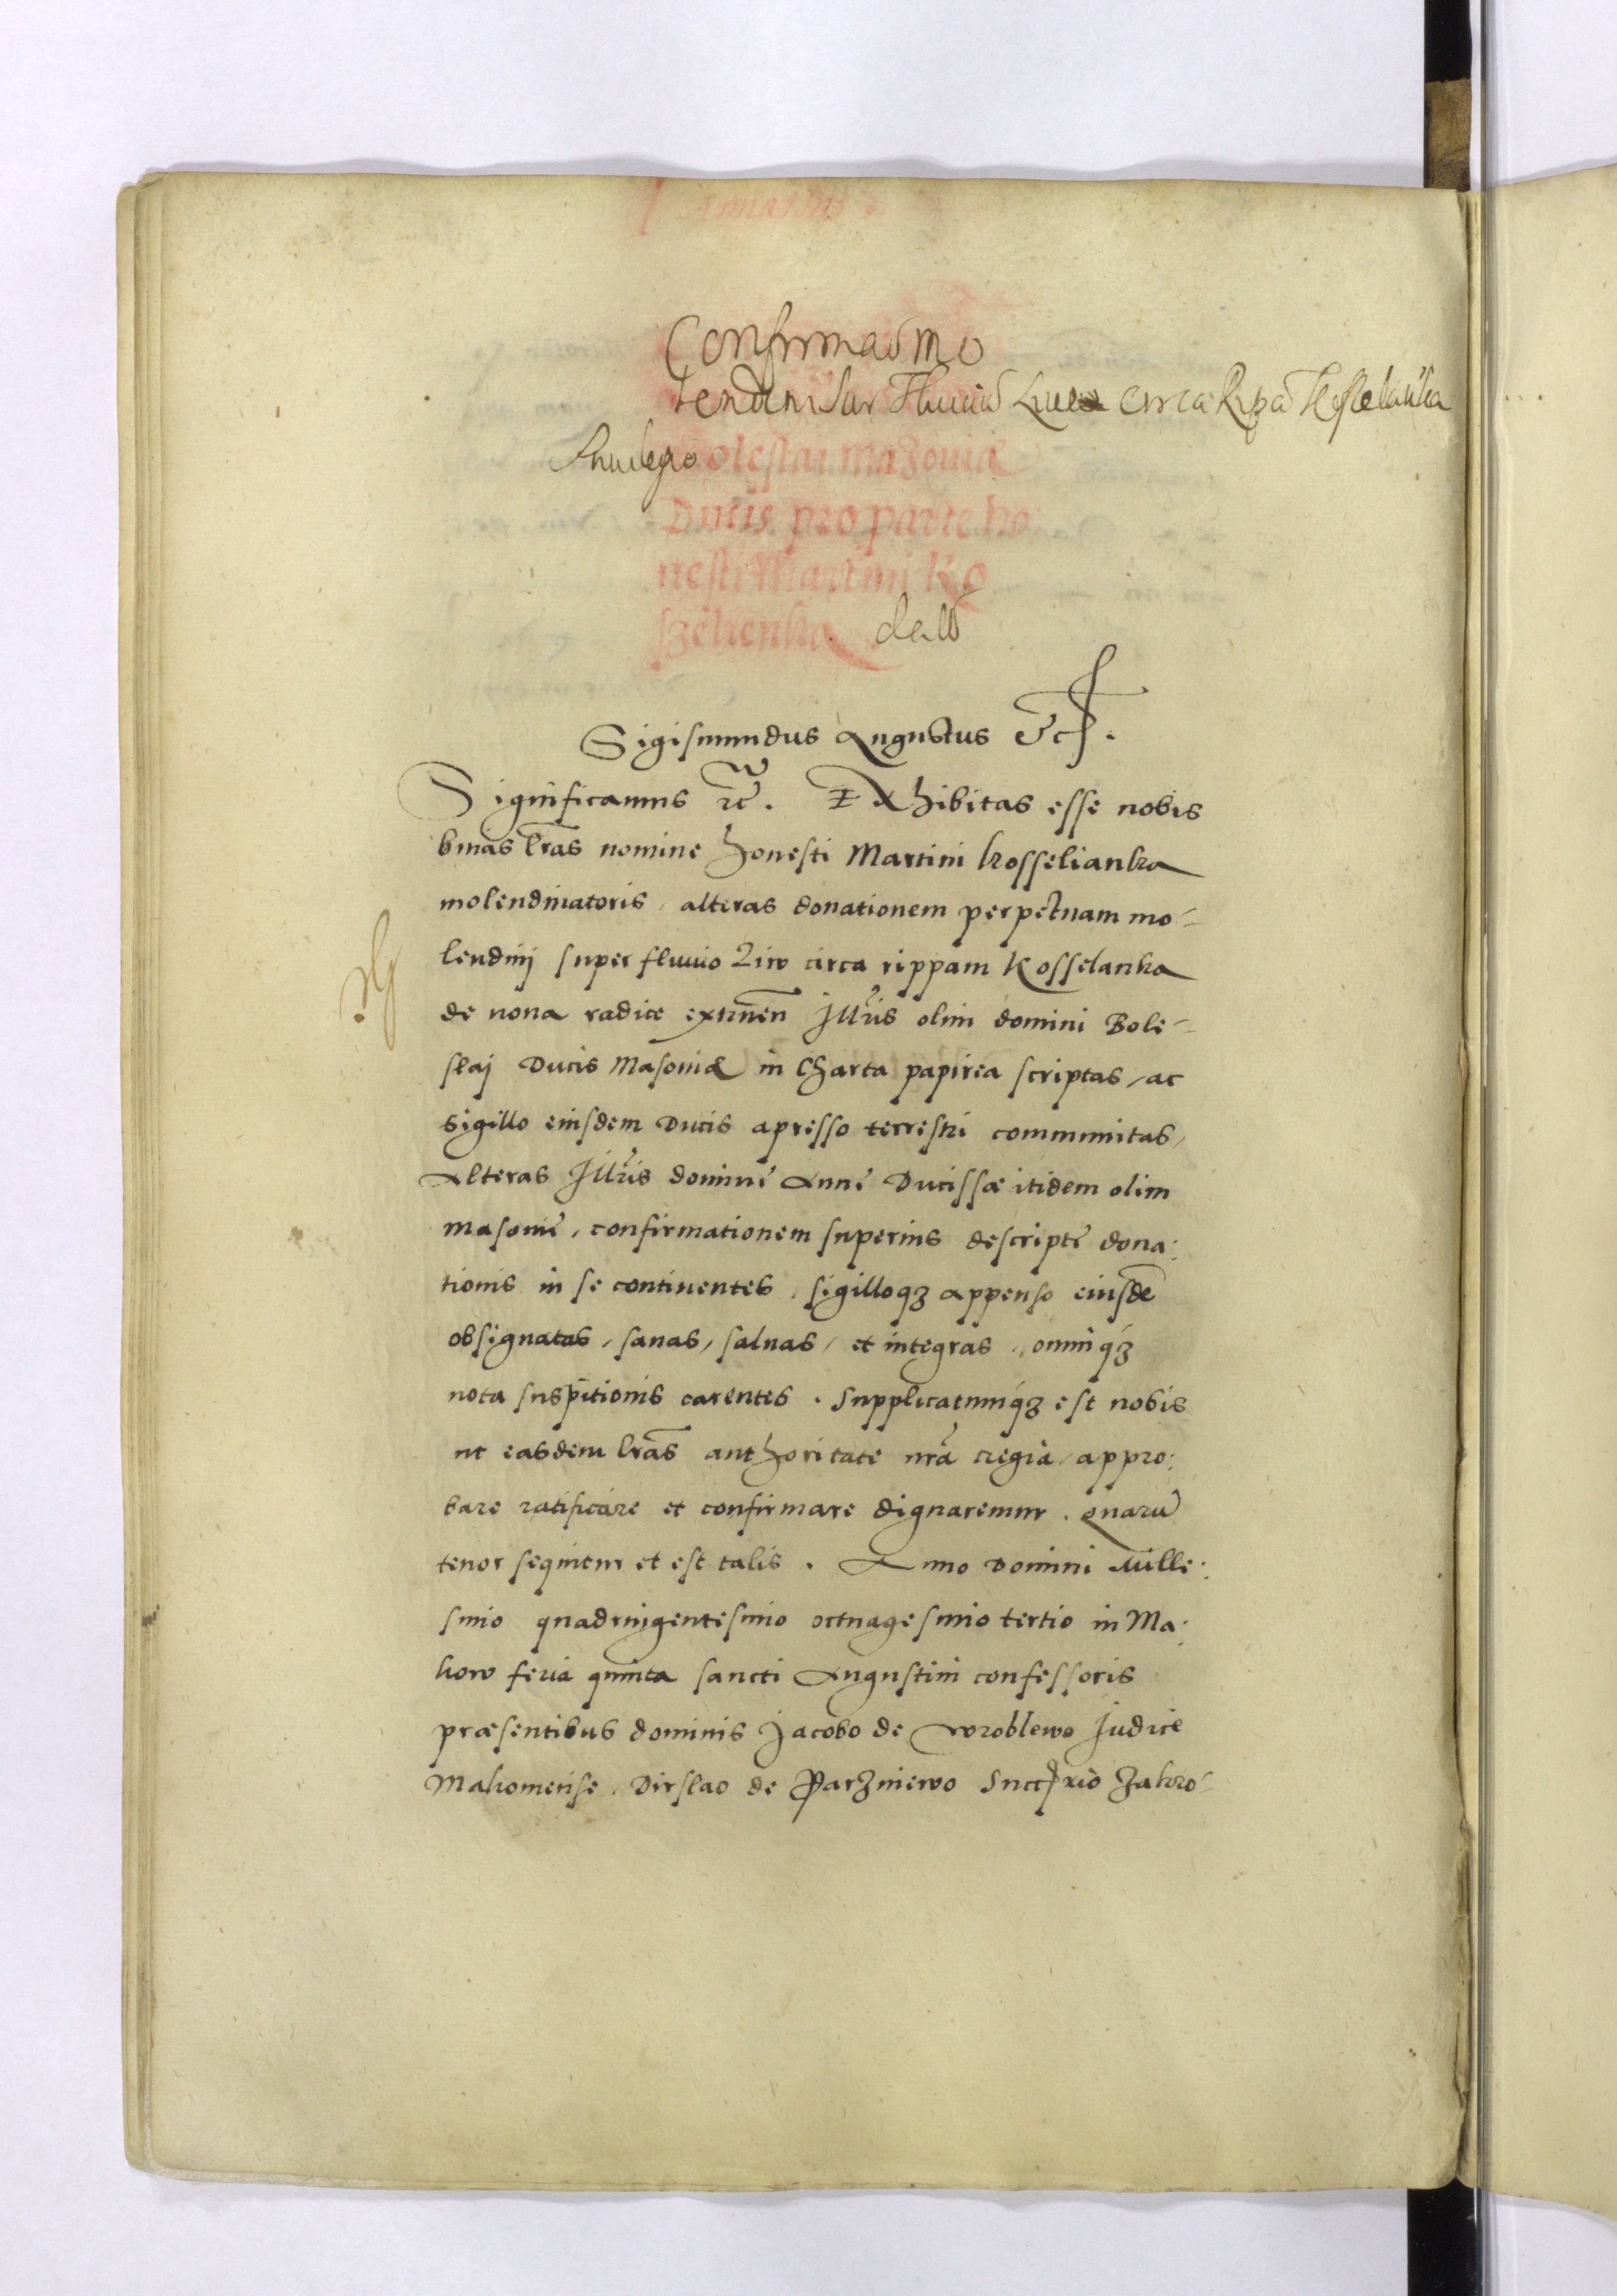 Confirmao mo
lendini sur Fluuiū Liuex circa Ripā Kosselanka
Priuilegio olestai mazoviæ
Ducis pro parte ho
nesti Martini Ko
szelienska
Sigismundus Augustus Etc.
Significamus etc. Exhibitas esse nobis
binas lr̃as nomine honesti Martini kosselianka
molendinatoris, alteras donationem perpetuam mo-
lendinj super fluuio Liw circa rippam Kosselanka
de noua radice extruen̄ Jllr̃is olim domini Bole-
slaj Ducis Masoviæ in Charta papirea scriptas, ac
sigillo eiusdem Ducis apresso terrestri communitas,
Alteras Jllr̃is dominę Annę Ducissæ itidem olim
masovię, confirmationem superius descriptę dona:
tionis in se continentes, sigilloqꝫ appenso eiusdē
obsignatas, sanas, saluas, et integras, omniqꝫ
nota suspitionis carentes. Supplicatumqꝫ est nobis
ut easdem lr̃as authoritate nr̃a regia appro:
bare ratificare et confirmare dignaremur. Quarū
tenor sequitur et est talis. Anno Domini Mille:
simo quadringentesimo octuagesimo tertio in Ma:
kow feria quinta sancti Augustini confessoris
præsentibus dominis Jacobo de Wroblewo Judice
Makomense, Dirslao de Parzniewo Zakro-